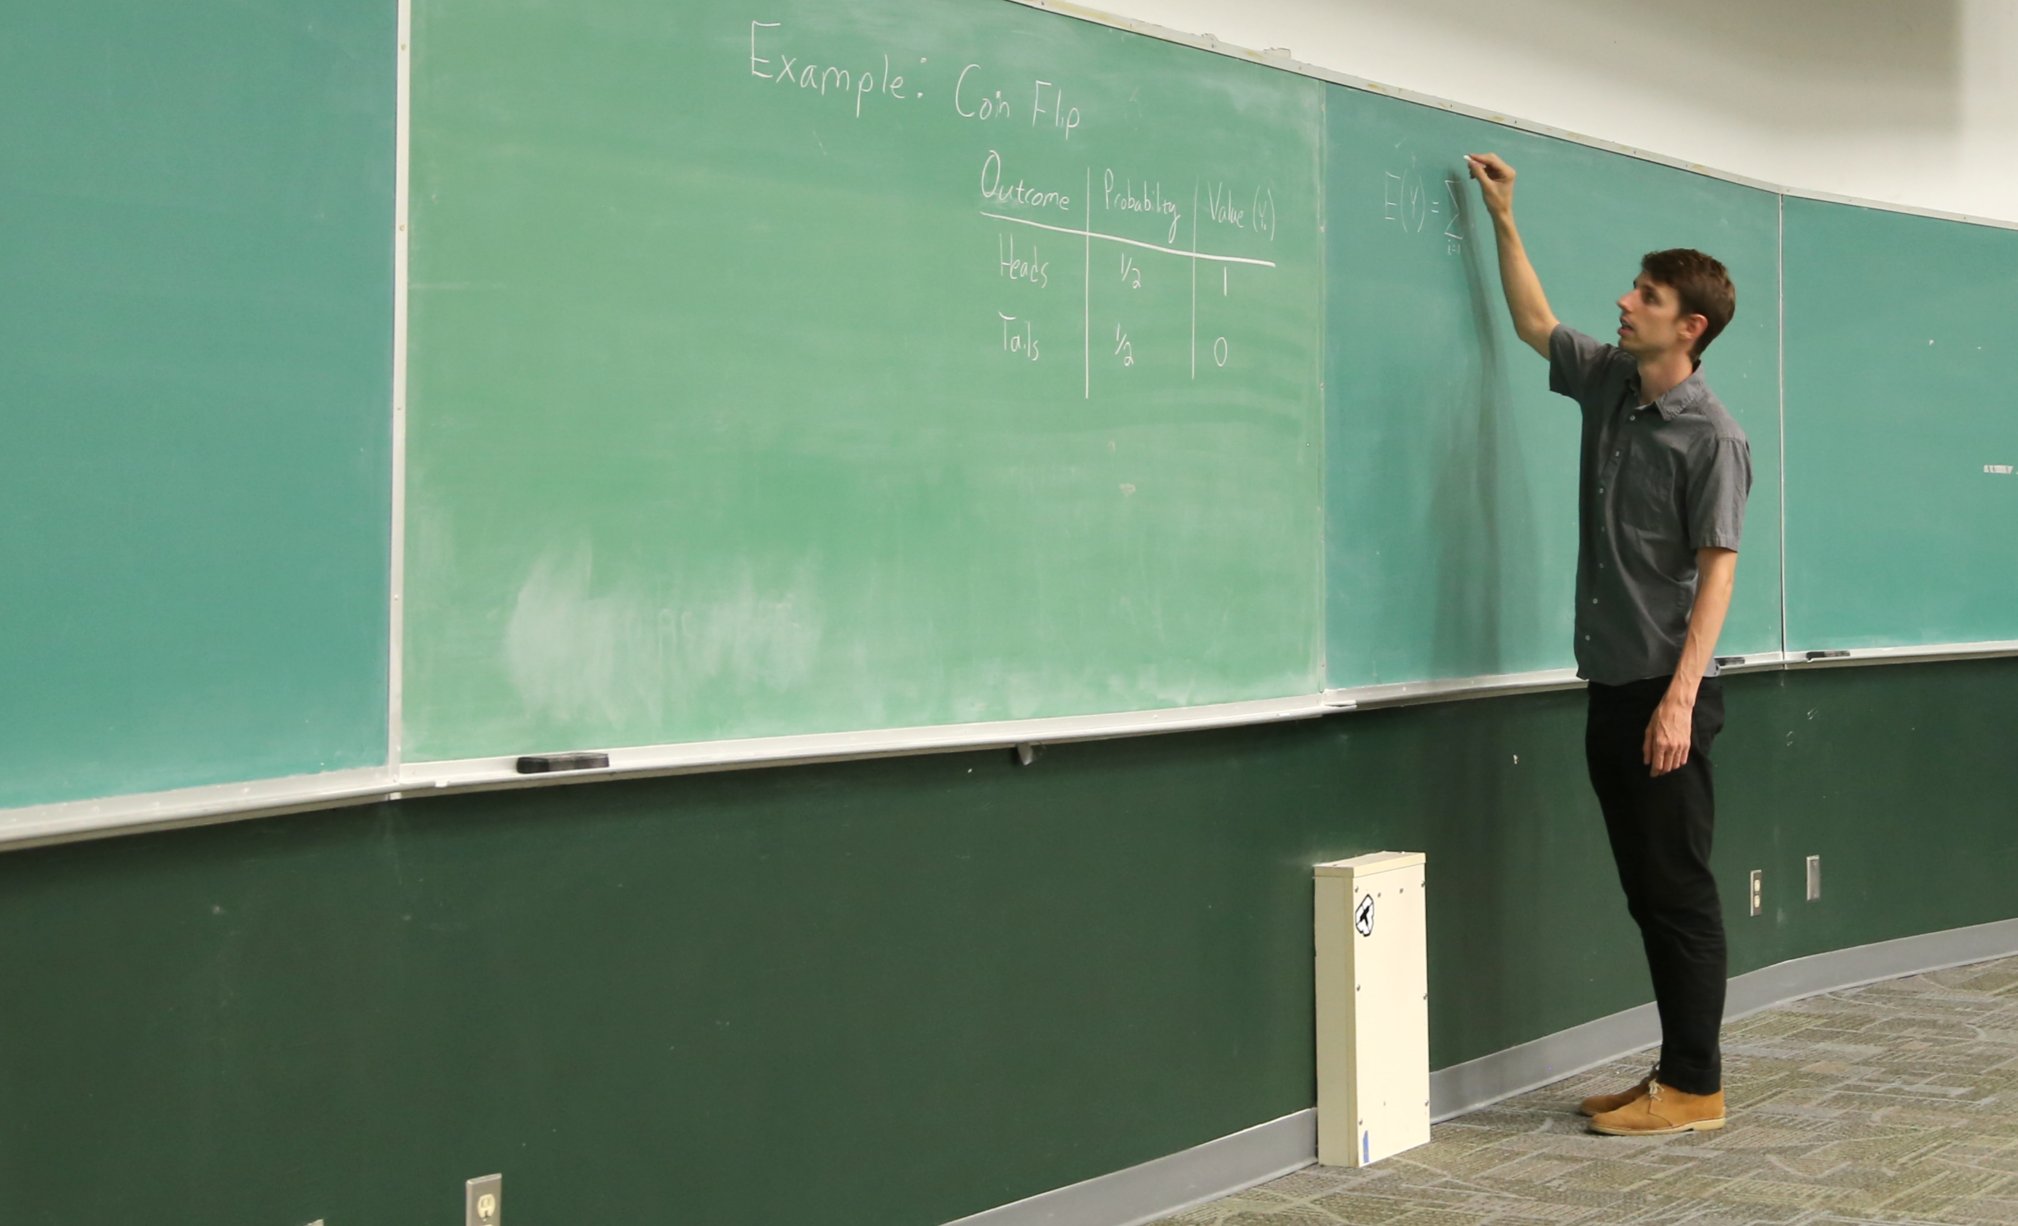 Example: Coin Flip
Outcome Probability Value (Yi)
Heads 1/2 1
Tails 1/2 0
E(Y) = ∑
i=1